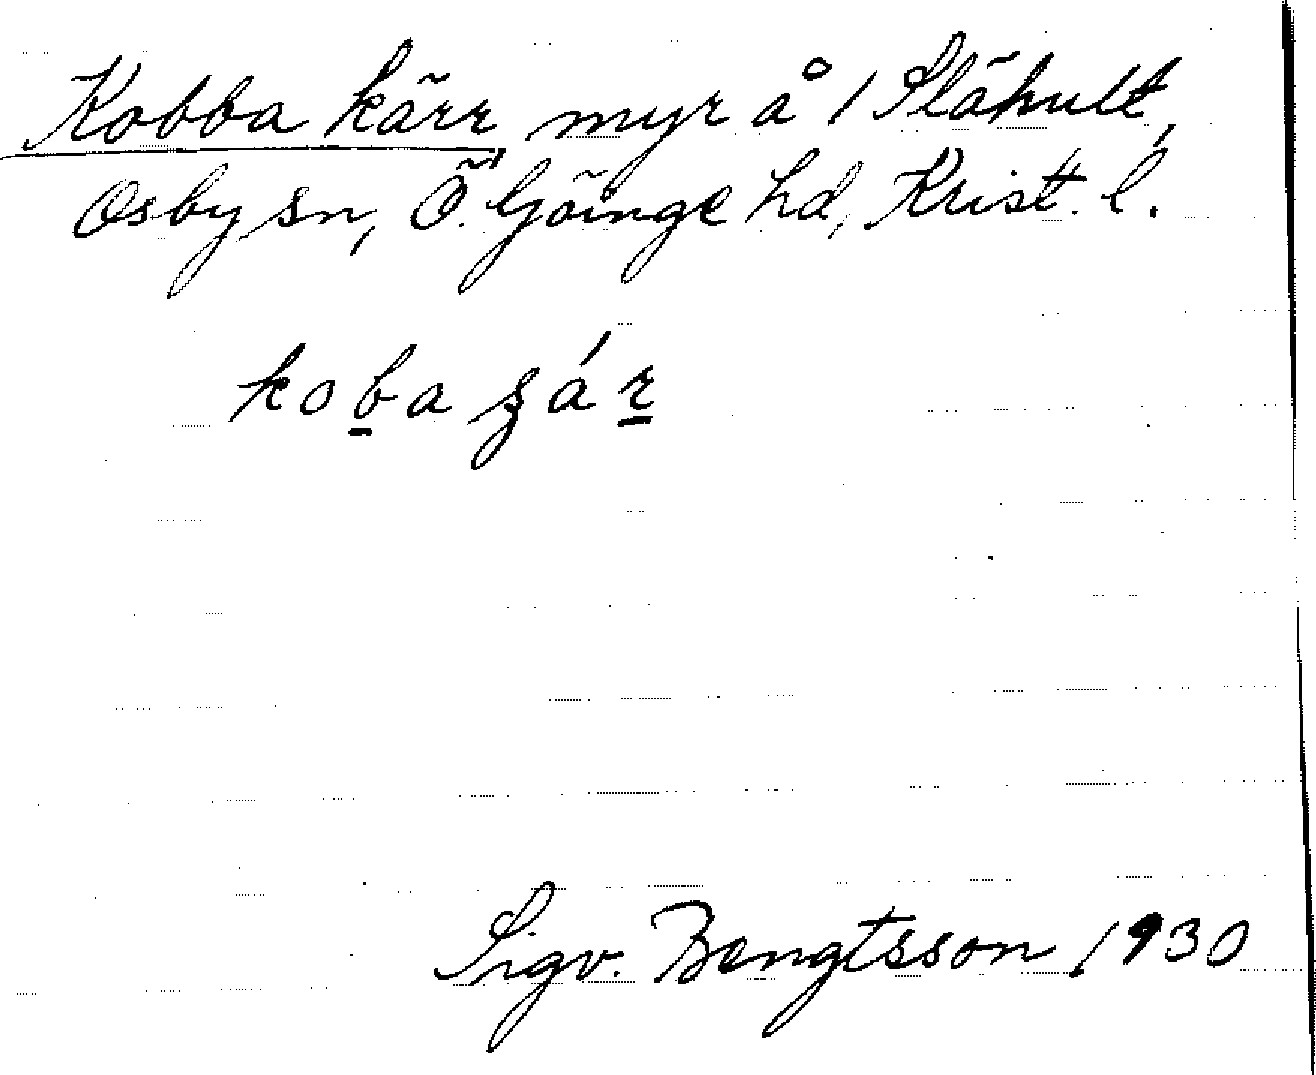 Kobba kärr, myr å 1 Slähult,
Osby sn, Ö. Göinge hd, Krist. l.
koba
Sigv. Bengtsson 1930